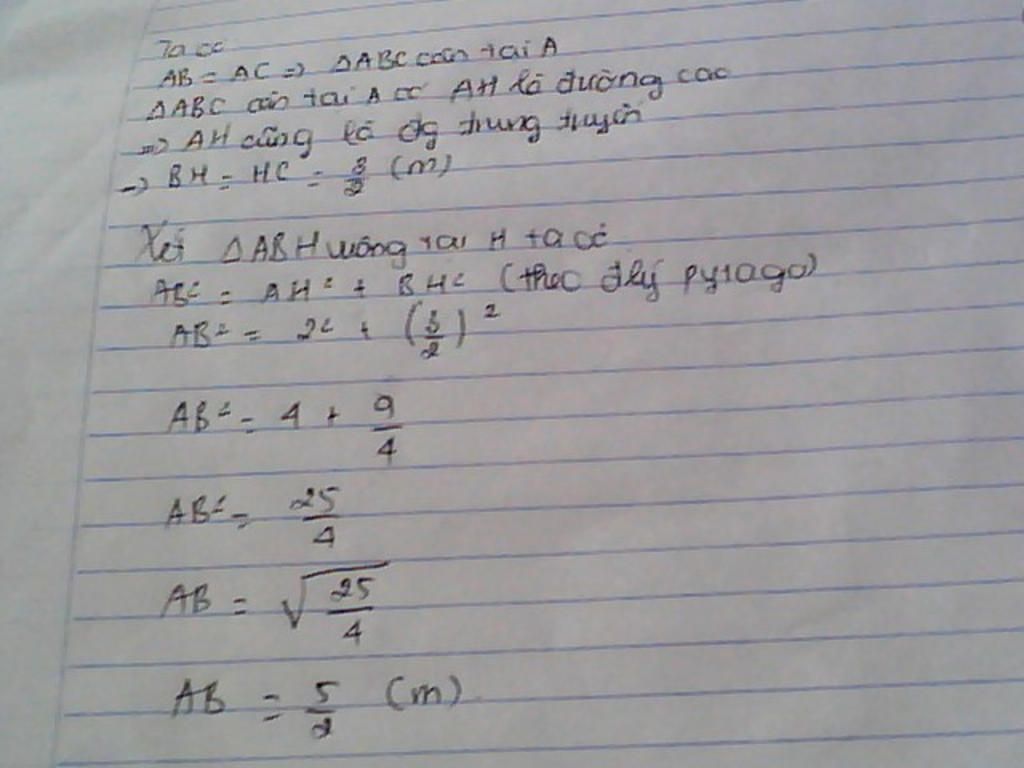 Ta có
AB = AC => ΔABC cân tại A
ΔABC cân tại A có AH là đường cao
=> AH cũng là đg trung tuyến
-> BH = HC = 3/2 (m)
Xét ΔABH vuông tại H ta có
AB² = AH² + BH² (theo đlý pytago)
AB² = 2² + (3/2)²
AB² = 4 + 9/4
AB² = 25/4
AB = √25/4
AB = 5/2 (m)